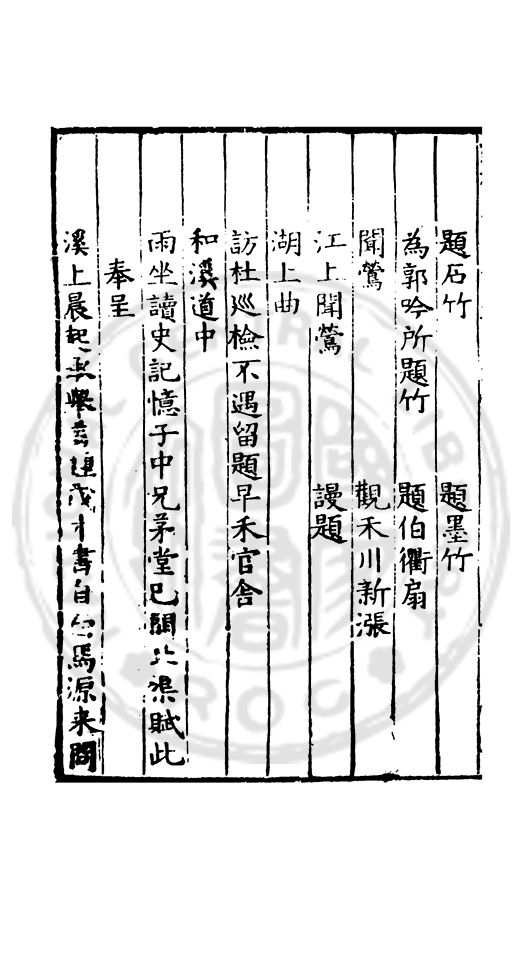 題石竹　題墨竹
為郭吟所題竹　題伯衢扇
聞鶯　觀禾川新漲
江上聞鶯　謾題
湖上曲
訪杜巡檢不遇留題早禾官舍
和溪道中
雨坐讀史記憶子中兄茅堂已開北渠賦此
奉呈
溪上晨起 連茂才書自 馬源来問